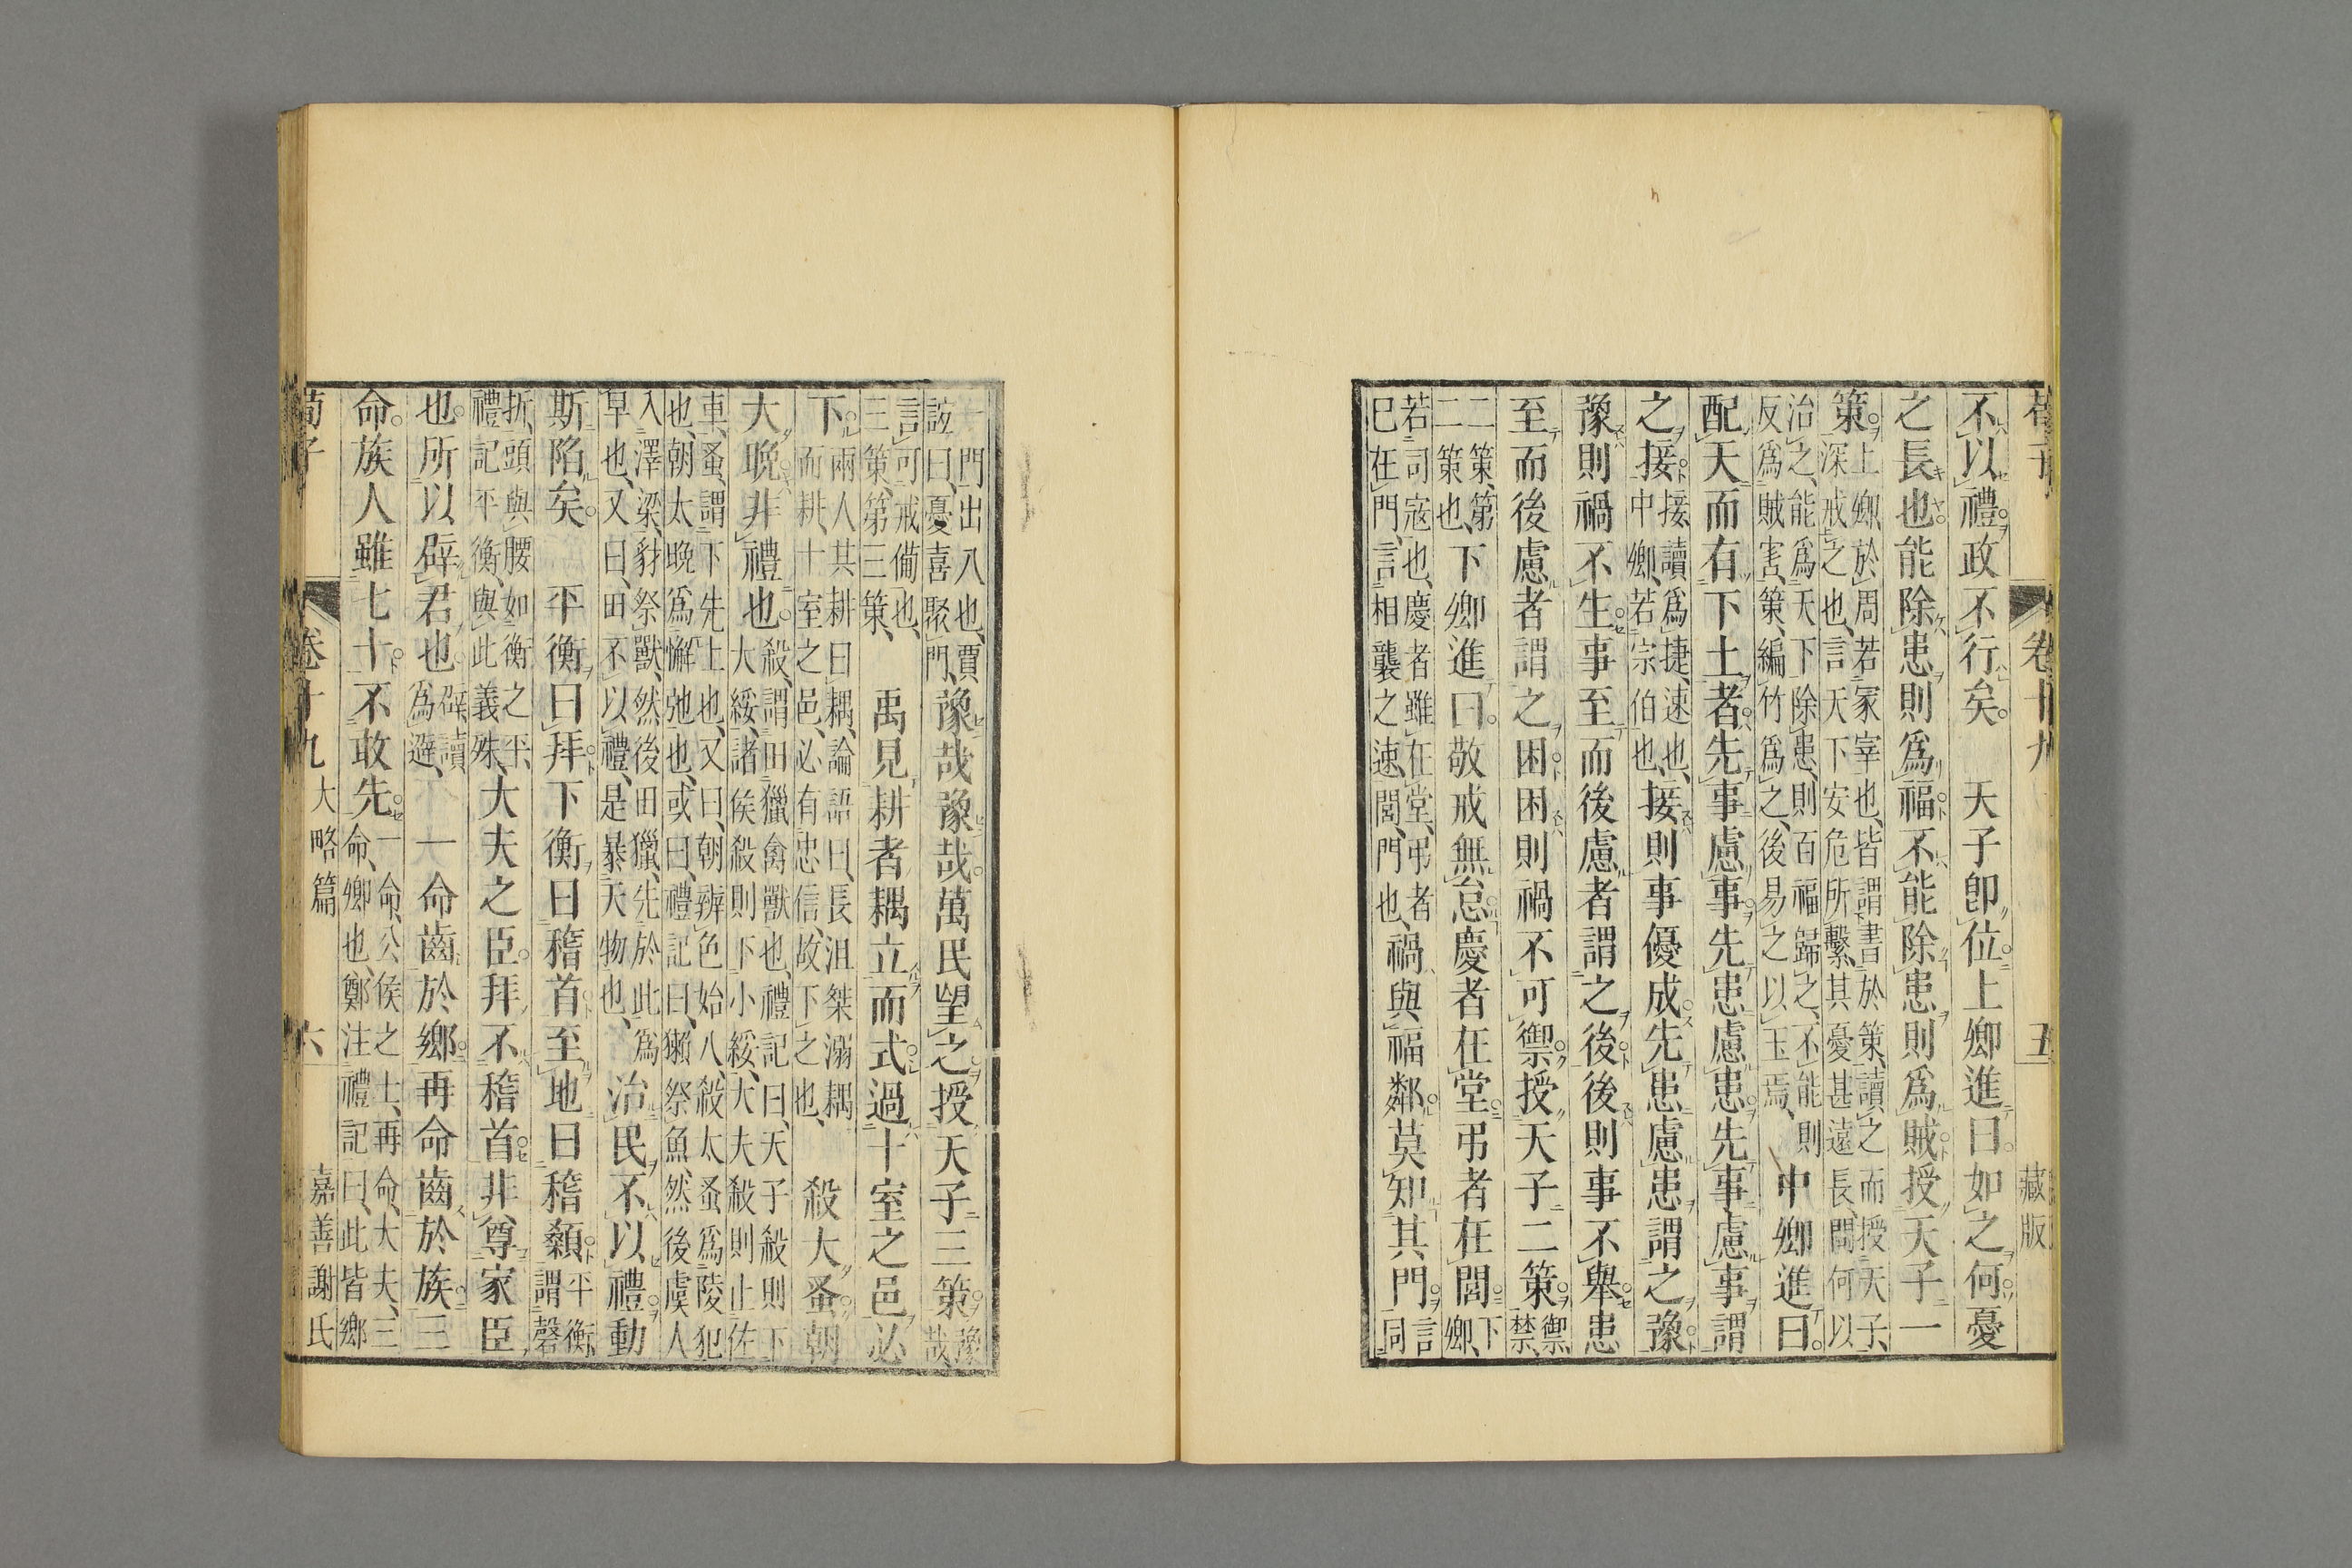 卷十九
五
藏版
不以禮政不行矣。 天子卽位。上卿進曰。如之何。憂
之長也。能除患則爲福。不能除患則爲賊。授天子一
策。上卿、於周若冢宰也、皆謂書於策、讀之而授天子、深戒之也、言天下安危所繫、其憂甚遠長、問何以
治之、能爲天下除患、則百福歸之、不能則反爲賊害、策、編竹爲之、後易之以玉焉、 中卿進曰。
配天而有下土者。先事慮事。先患慮患。先事慮事謂
之接。接、讀爲捷、速也、中卿、若宗伯也、接則事優成。先患慮患謂之豫。
豫則禍不生。事至而後慮者謂之後。後則事不舉。患
至而後慮者謂之困。困則禍不可禦。授天子二策。禦、禁、
二策、第二策也、 下卿進曰。敬戒無怠。慶者在堂。弔者在閭。下卿、
若司寇也、慶者雖在堂、弔者已在門、言相襲之速、閭、門也、 禍與福鄰。莫知其門。言同
一門出入也、賈誼曰、憂喜聚門、 豫哉豫哉。萬民望之。授天子三策。豫哉、
言可戒備也、三策、第三策、 禹見耕者耦立而式。過十室之邑必
下。兩人共耕曰耦、論語曰、長沮桀溺耦而耕、十室之邑、必有忠信、故下之也、 殺大蚤。朝
大晚。非禮也。殺、謂田獵禽獸也、禮記曰、天子殺則下大綏、諸侯殺則下小綏、大夫殺則止佐
車、蚤、謂下先上也、又曰、朝辨色始入、殺太蚤爲陵犯也、朝太晚爲懈弛也、或曰、禮記曰、獺祭魚、然後虞人
入澤梁、豺祭獸、然後田獵、先於此爲早也、又曰、田不以禮、是暴天物也、 治民不以禮。動
斯陷矣。 平衡曰拜。下衡曰稽首。至地曰稽顙。平衡、謂磬
折、頭與腰如衡之平、禮記平衡、與此義殊、 大夫之臣。拜不稽首。非尊家臣
也。所以辟君也。辟、讀爲避、 一命齒於鄉。再命齒於族。三
命。族人雖七十。不敢先。一命、公侯之士、再命、大夫、三命、卿也、鄭注禮記曰、此皆鄉
荀子
卷十九
大略篇
六
嘉善謝氏